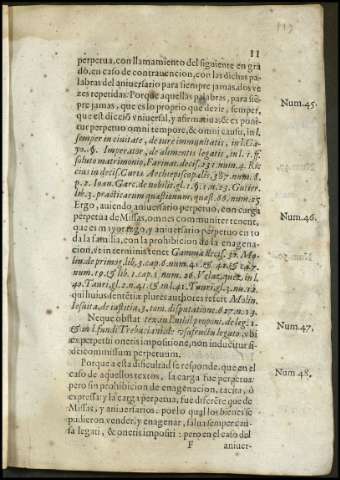 11
perpetua, con llamamiento del siguiente en gra
do, en caso de contrauencion, con las dichas pa-
labras del aniuersario para siempre jamas, dos ve
zes repetidas. Porque aquellas palabras, para siē
pre jamas, que es lo proprio que dezir, semper,
que est dictio vniuersal, y afirmatiua, & ex poni-
tur perpetuo omni tempore, & omni casu, in l.
semper in ciuitate, de iure immunitatis, in l. Ga-
yo, §. Imperator, de alimentis legatis, in l. 1. ff.
soluto matrimonio, Farinat. decis. 151. num. 4. Ric
cius in decis. Curiæ Archiepiscopalis, 387. num. 8.
p. 2. Ioan. Garc. de nobilit. gl. 1. §. 1. n. 23. Gutier.
lib. 3. practicarum quæstionum, quæst. 68. num. 25
Num. 45.
Ergo, auiendo aniuersario perpetuo, con carga
perpetua de Missas, omnes communiter tenent,
que es mayorazgo, y aniuersario perpetuo en to
da la familia, con la prohibicion de la enagena-
cion, & in terminis tenet Gamma decis. 32. Mo-
lin. de primog. lib. 3. cap. 6. num. 41. & 42. & 247.
num. 19. & lib. 1. cap. 1. num. 26. Velazquez, in l.
40. Tauri, gl. 2. n. 41. & in l. 41. Tauri, gl. 3. nu. 12.
qui huius sententiæ plures authores refert Molin.
Iesuita, de iustitia, 3. tom. disputatione. 627. n. 23.
Num. 46.
Neque obstat tex. in
& in l. fundi Trebatiani, de vsufructu legato, vbi
ex perpetui oneris impositione, non inducitur fi-
deicommissum perpetuum.
Num. 47.
Porque a esta dificultad se responde, que en el
caso de aquellos textos, la carga fue perpetua:
pero sin prohibicion de enagenacion, tacita, ò
expressa: y la carga perpetua, fue de dezir de
Missas, y aniuersarios: por lo qual los bienes se
pudieron vender, y enagenar, salua semper cau-
sa legati, & oneris impositi: pero en el caso del
Num. 48.
F aniuer-